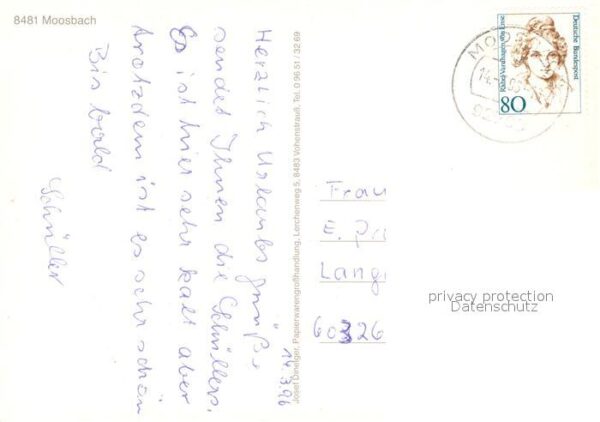 8481 Moosbach
Herzlich Urlaubs grüße
sendet Ihnen die Schüllers.
Es ist hier sehr kalt aber
trotzdem ist es sehr schön
Bis bald
Schüller
14.3.96
Josef Danziger, Papierwarengroßhandlung, Lerchenweg 5, 8483 Vohenstrauß, Tel. 0 96 51 / 32 69
Deutsche Bundespost
Rahel Varnhagen von Ense
80
Frau
E.
Lang
60326
privacy protection
Datenschutz